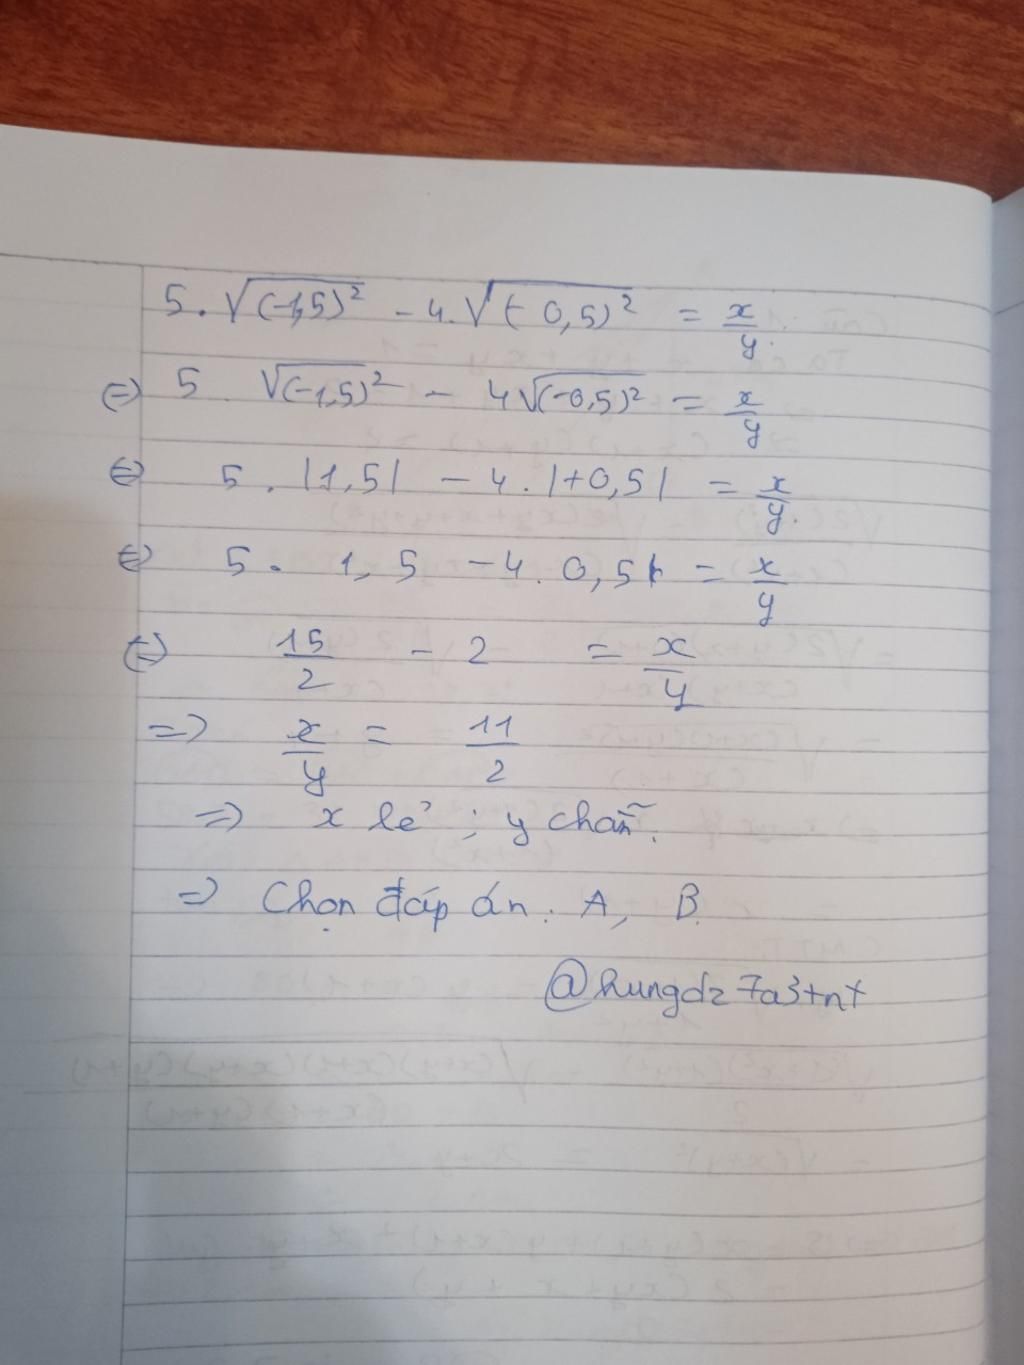 5. √(-1,5)² - 4.√(-0,5)² = x/y.
⇔ 5 √(-1,5)² - 4√(-0,5)² = x/y
⇔ 5. |1,5| - 4. |+0,5| = x/y.
⇔ 5. 1,5 - 4. 0,5 = x/y
⇔ 15/2 - 2 = x/y
=> x/y = 11/2
=> x lẻ ; y chẵn.
=> Chọn đáp án. A, B.
@hungdz 7a3tnt